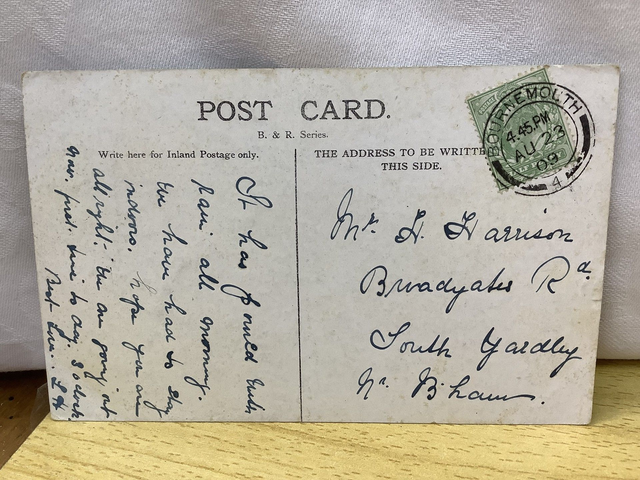 POST CARD.
B. & R. Series.
Write here for Inland Postage only.
THE ADDRESS TO BE WRITTE
THIS SIDE.
BOURNEMOUTH
4.45 PM
AU 23
09
4
It has poured with
rain all morning.
We have had to stay
indoors. hope you are
allright. We are going out
now first time to day 3 oclock.
Best Love. L H
Mr. H. Harrison
Broadyates Rd.
South Yardley
Nr. B'ham.